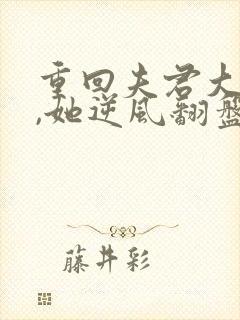 重回夫君大
,她逆风翻盘
藤井彩